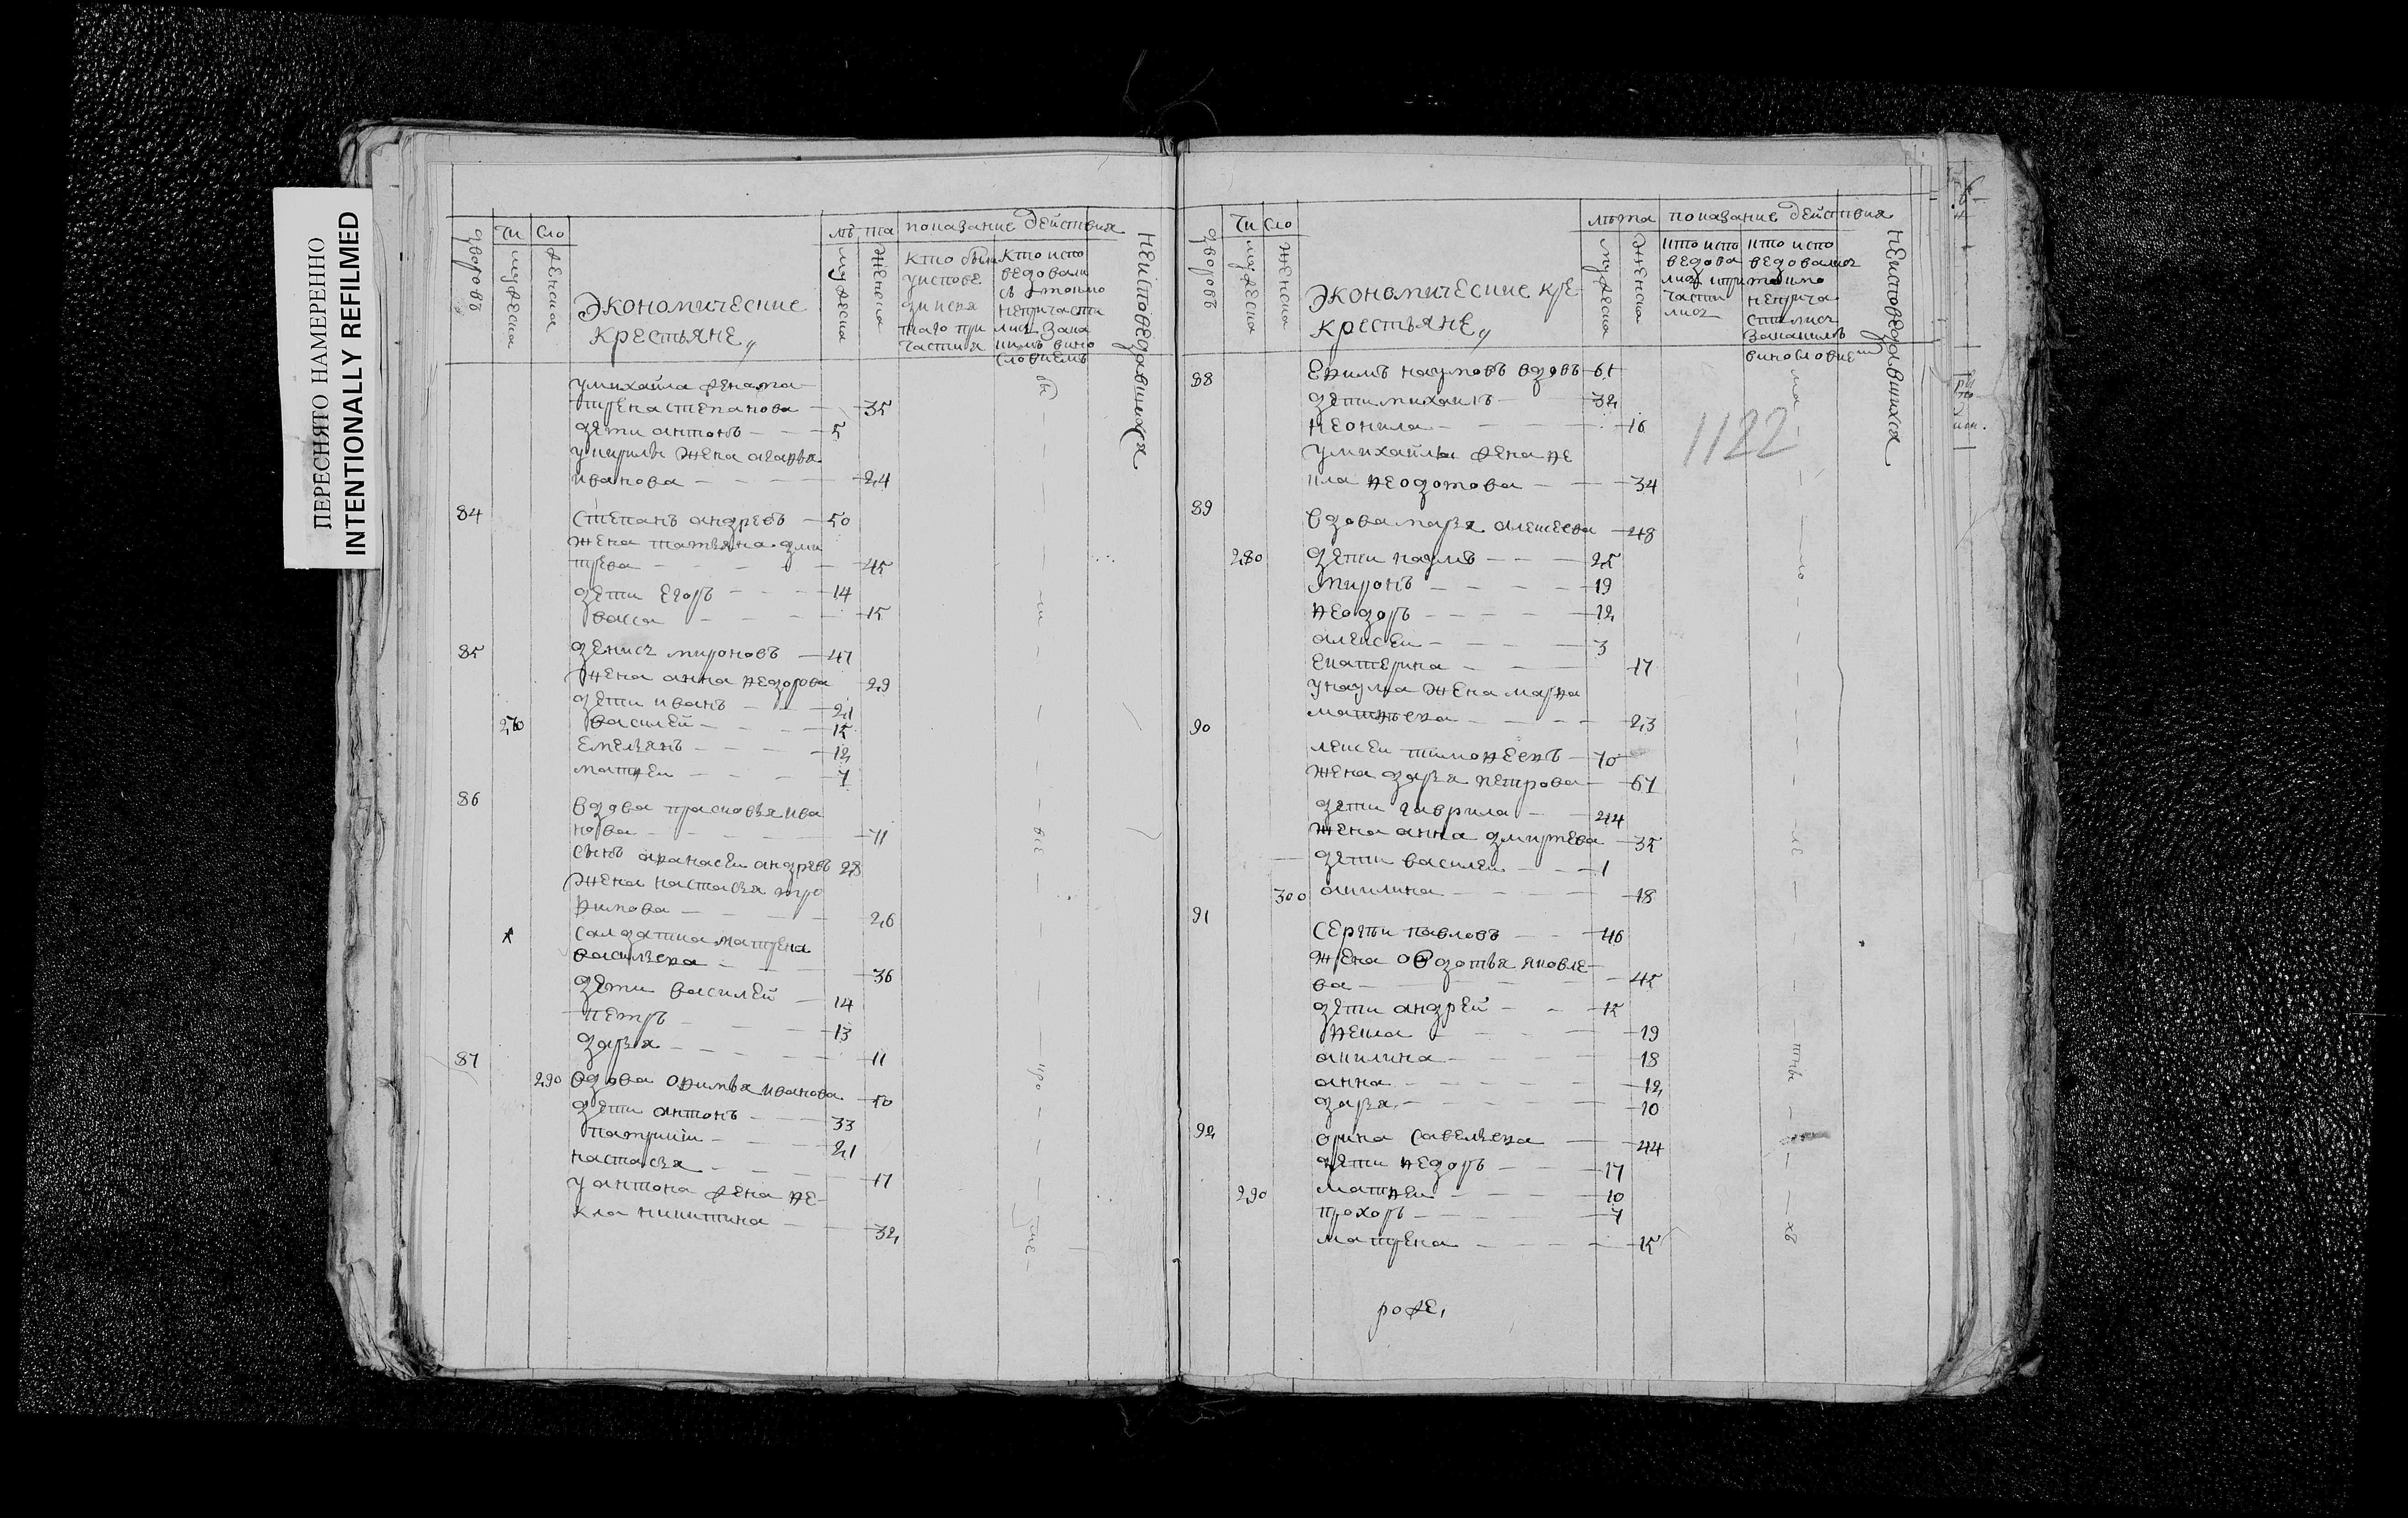 ПЕРЕСНЯТО НАМЕРЕННО
INTENTIONALLY REFILMED
дворовъ
чи сло
мужеска
женска
Экономические
крестьяне
лѣ та
мужеска
женска
показание действия
кто были
у испове
ди
таго при
частия
кто испо
ведовали
непричасти
лись
неисповедавшихся
у михайла жена ма
трена степанова — 35
дети антонъ — 5
у кирилы жена агафья
иванова — 24
84 степанъ андревъ — 50
жена татьяна дми
трева — 45
дети егоръ — 14
васса — 15
85 денисъ мироновъ — 47
жена анна ѳедорова 29
дети иванъ — 21
270 василей — 15
емельянъ — 12
матѳеи — 7
86 вдова прасковья ива
нова — 71
сынъ аѳанасеи андревъ 28
жена настасья тро
ѳимова — 26
салдатка матрена
васильева — 36
дети василей — 14
петръ — 13
дарья — 11
87
290 вдова оѳимья иванова — 50
дети антонъ — 33
патрикіи — 21
настасья — 17
у антона жена ѳе
кла никитина — 32
дворовъ
чи сло
мужеска
женска
Экономические кре
крестьяне
лѣта
мужеска
женска
показание действия
кто испо
ведова
лись и при
части
лись
кто испо
ведовались
неприча
стились
неисповедавшихся
88 еѳимъ наумовъ вдовъ — 61
дети михаилъ — 32
неонила — 16
у михайлы жена ѳе
кла ѳеодотова — 34
89 вдова марья алексеева — 48
280 дети наумъ — 25
миронъ — 19
ѳеодоръ — 12
алексеи — 3
екатерина — 17
у наума жена марѳа
матѳеева — 23
90 лексеи тимоѳеевъ — 70
жена дарья петрова — 67
дети гаврила — 44
жена анна дмитрева — 35
дети василеи — 1
300 акилина — 18
91 сергѣи павловъ — 46
жена овдотья яковле
ва — 45
дети андрей — 15
ѳекла — 19
акилина — 18
анна — 12
дарья — 10
92 орина савельева — 44
дети ѳедоръ — 17
290 матѳеи — 10
прохоръ — 7
матрена — 15
роже
1122